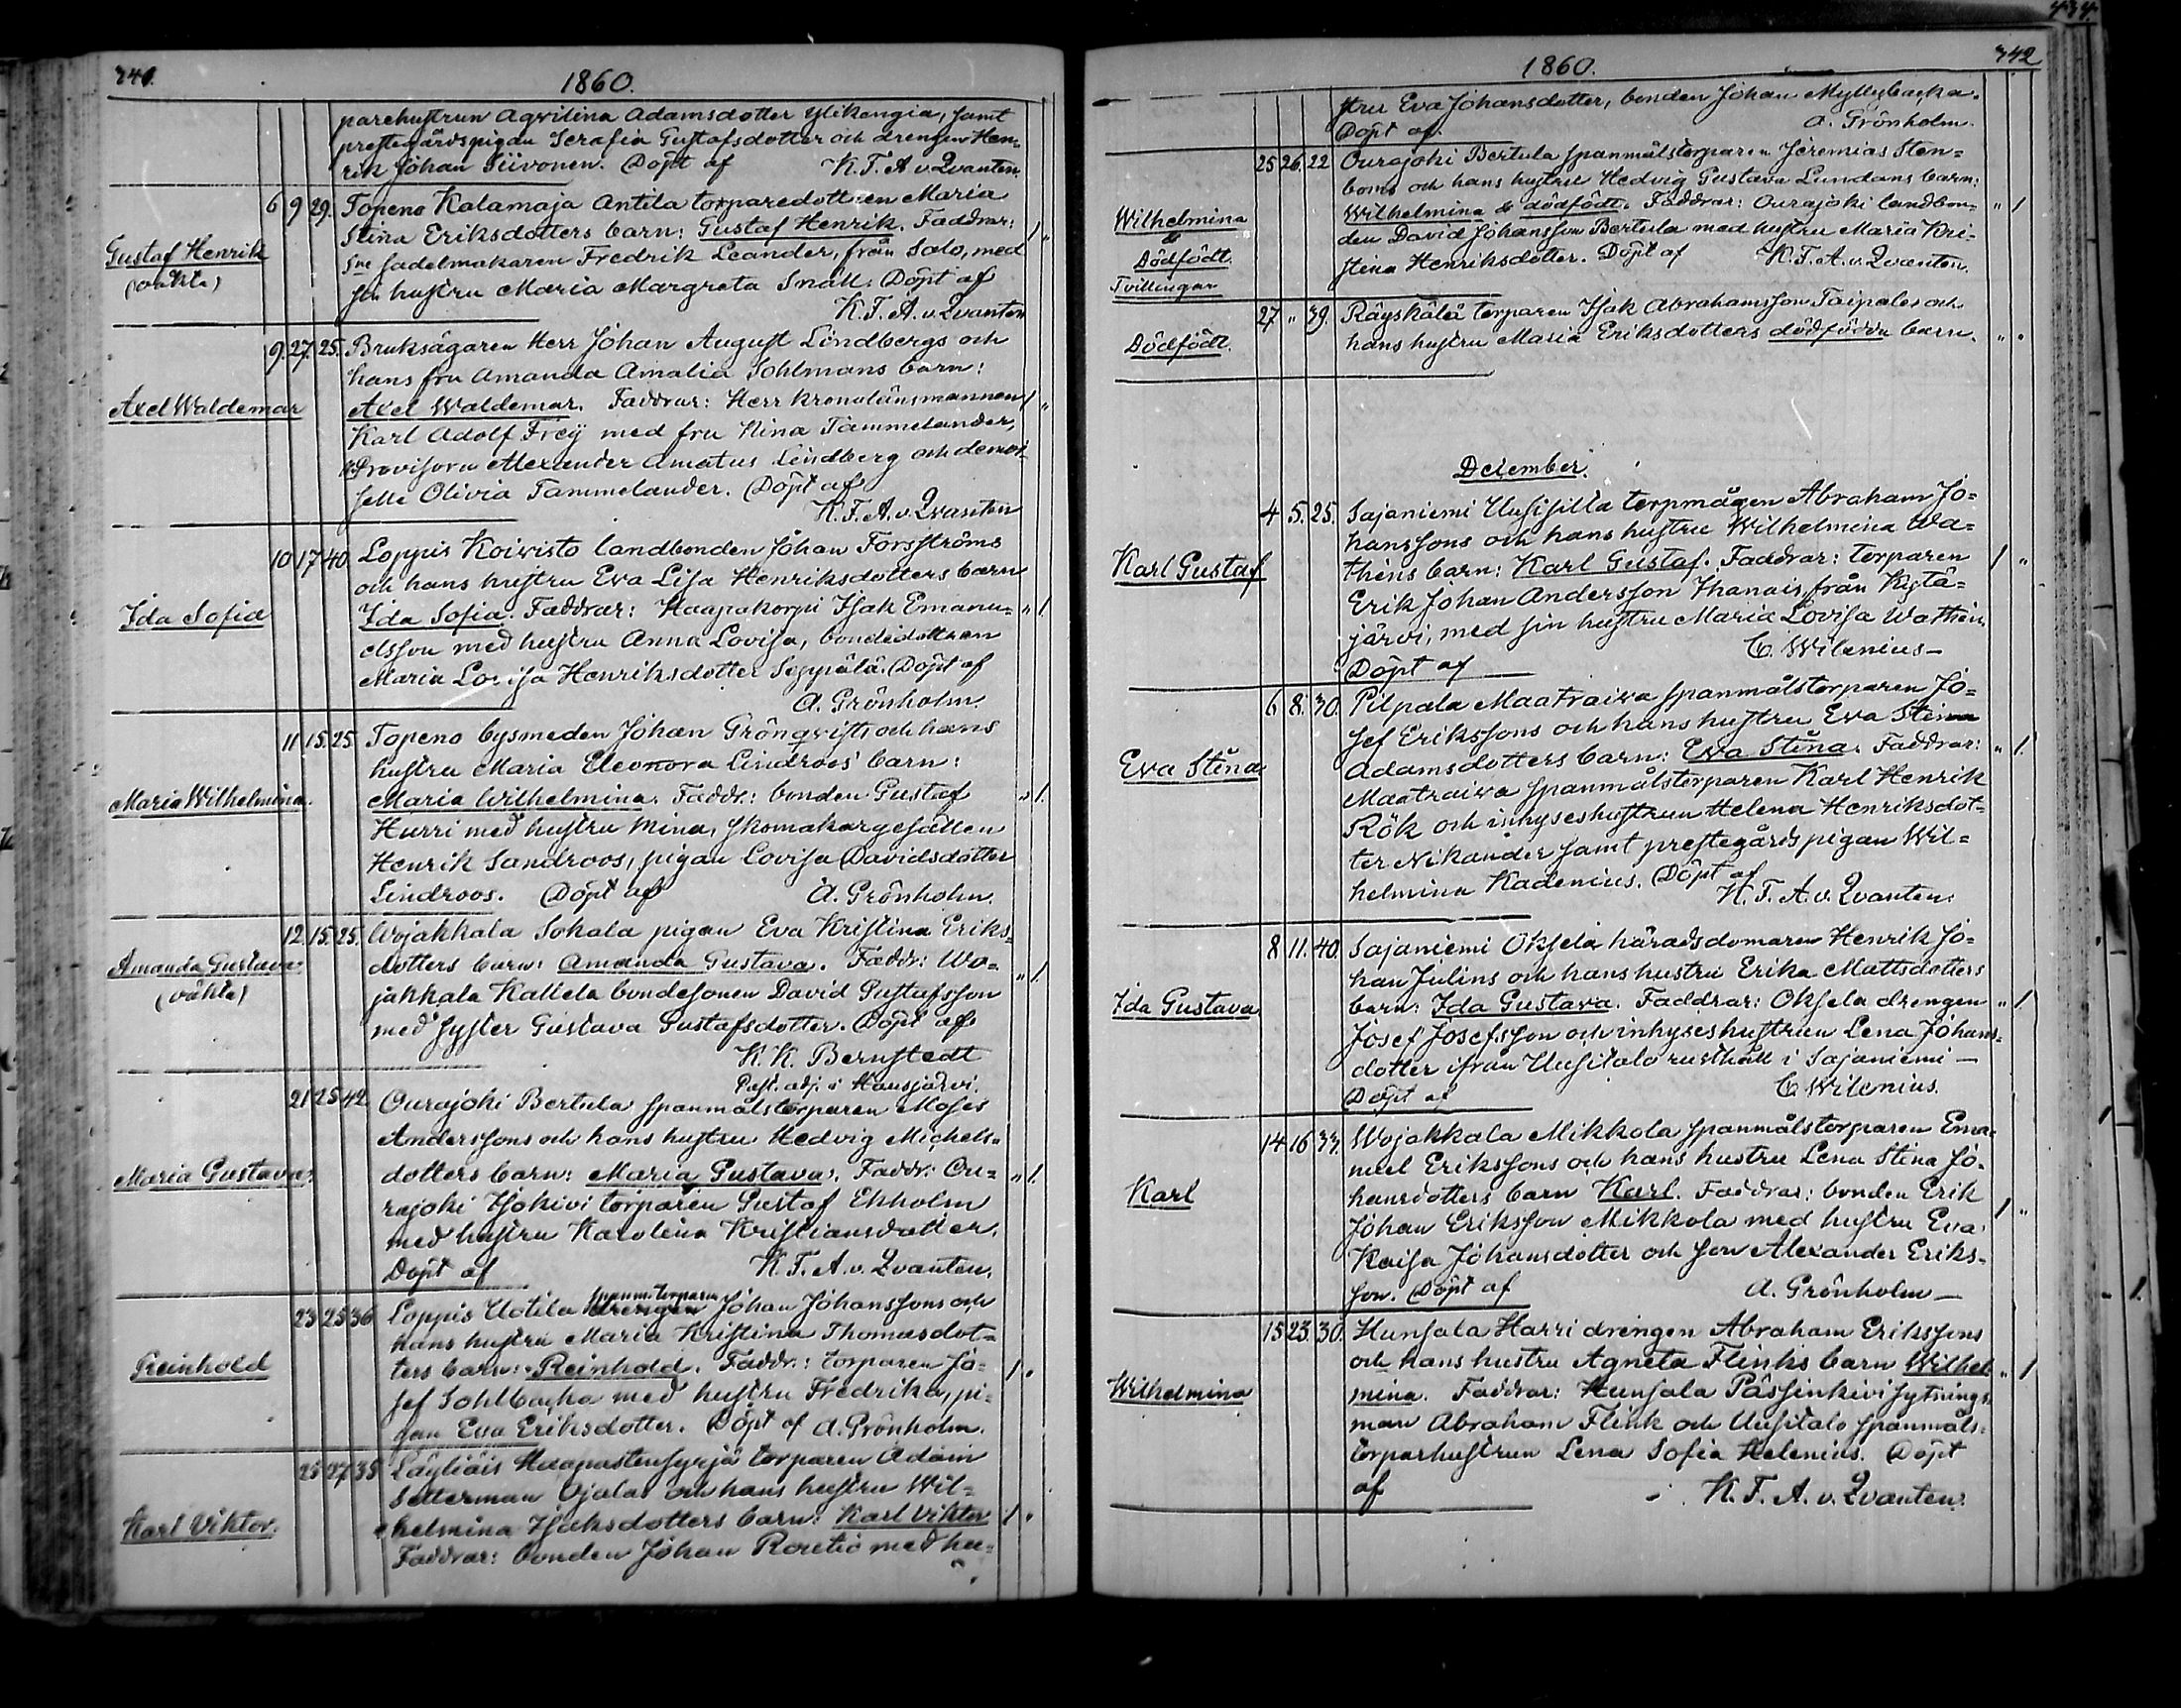 341.
1860.
parehustrun Aqvilina Adamsdotter Ylikangia, samt
prestegårdspigan Serafia Gustafsdotter och drengen Hen-
rik Johan Siivonen. Döpt af K. F. A. v. Qvanten.
Gustaf Henrik
(oäkta)
6 9 29. Topeno Kalamaja Antila torparedottren Maria
Stina Eriksdotters barn: Gustaf Henrik. Faddrar: 1 "
sadelmakaren Fredrik Leander, från Salo, med
sin hustru Maria Margreta Snäll. Döpt af
K. F. A. v. Qvanten
Axel Waldemar
9. 27. 25. Bruksägaren Herr Johan August Lindbergs och
hans fru Amanda Amalia Sohlmans barn:
Axel Waldemar. Faddrar: Herr Kronolänsmannen 1 "
Karl Adolf Frey med fru Nina Tammelander,
Provisorn Alexander Amatus Lindberg och demoi-
selle Olivia Tammelander. Döpt af
K. F. A. v. Qvanten
Ida Sofia
10 17 40. Loppis Koivisto landbonden Johan Forsströms
och hans hustru Eva Lisa Henriksdotters barn
Ida Sofia. Faddrar: Haapakorpi Isak Emanu- " 1.
elsson med hustru Anna Lovisa, bondedottren
Maria Lovisa Henriksdotter Seppälä. Döpt af
A. Grönholm.
Maria Wilhelmina.
11 15. 25 Topeno bysmeden Johan Grönqvists och hans
hustru Maria Eleonora Lindroos' barn:
Maria Wilhelmina. Faddr.: bonden Gustaf " 1.
Hurri med hustru Mina, skomakargesällen
Henrik Sandroos, pigan Lovisa Davidsdotter
Lindroos. Döpt af A. Grönholm.
Amanda Gustava
(oäkta)
12. 15. 25. Wojakkala Sokala pigan Eva Kristina Eriks-
dotters barn: Amanda Gustava. Faddr: Wo- " 1.
jakkala Kallela bondesonen David Gustafsson
med syster Gustava Gustafsdotter. Döpt af
K. K. Bernstedt
Past. adj. i Hausjärvi.
Maria Gustava.
21 25 42. Ourajoki Bertula spanmålstorparen Moses
Anderssons och hans hustru Hedvig Michels-
dotters barn: Maria Gustava. Faddr: Ou- " 1.
rajoki Isokivi torparen Gustaf Ekholm
med hustru Karolina Kristiansdotter.
Döpt af K. F. A. v. Qvanten.
Reinhold
spanm. torparen
23 25 36 Loppis Uotila drengen Johan Johanssons och
hans hustru Maria Kristina Thomasdot-
ters barn: Reinhold. Faddr.: torparen Jo- 1 "
sef Sohlbacka med hustru Fredrika, pi-
gan Eva Eriksdotter. Döpt af A. Grönholm.
Karl Viktor.
25 27 35 Läyliäis Haapastensyrjä torparen Adam
Setterman Ojalas och hans hustru Wil-
helmina Isaksdotters barn: Karl Viktor 1 "
Faddrar: bonden Johan Rouetio med hu-
434.
342
1860.
stru Eva Johansdotter, bonden Johan Myllybacka.
Döpt af A. Grönholm.
Wilhelmina
&
Dödfödt.
Tvillingar
25 26. 22 Ourajoki Bertula spanmålstorparen Jeremias Sten-
boms och hans hustru Hedvig Gustava Lundans barn:
Wilhelmina & dödfödt. Faddrar: Ourajoki landbon- " 1
den David Johansson Bertula med hustru Maria Kri-
stina Henriksdotter. Döpt af K. F. A. v. Qvanten.
Dödfödt.
27 " 39. Räyskälä torparen Isak Abrahamsson Taipales och
hans hustru Maria Eriksdotters dödfödda barn. " "
December.
Karl Gustaf
4 5. 25. Sajaniemi Uusisilla torpmågen Abraham Jo-
hanssons och hans hustru Wilhelmina Wa-
théns barn: Karl Gustaf. Faddrar: torparen 1 "
Erik Johan Andersson Ihanais, från Kytä-
järvi, med sin hustru Maria Lovisa Wathén.
Döpt af C. Wilenius-
Eva Stina
6 8. 30. Pilpala Maatraiva spanmålstorparen Jo-
sef Erikssons och hans hustru Eva Stina
Adamsdotters barn: Eva Stina. Faddrar: " 1.
Maatraiva spanmålstorparen Karl Henrik
Rök och inhyseshustrun Helena Henriksdot-
ter Nikander samt prestegårdspigan Wil-
helmina Kadenius. Döpt af
K. F. A. v. Qvanten.
Ida Gustava
8 11. 40. Sajaniemi Oksela häradsdomaren Henrik Jo-
han Julins och hans hustru Erika Mattsdotters
barn: Ida Gustava. Faddrar: Oksela drengen " 1
Josef Josefsson och inhyseshustrun Lena Johans-
dotter ifrån Uusitalo rusthåll i Sajaniemi -
Döpt af C. Wilenius.
Karl
14 16 33. Wojakkala Mikkola spanmålstorparen Ema-
nuel Erikssons och hans hustru Lena Stina Jo-
hansdotters barn Karl. Faddrar: bonden Erik
Johan Eriksson Mikkola med hustru Eva 1 "
Kaisa Johansdotter och son Alexander Eriks-
son. Döpt af A. Grönholm -
Wilhelmina
15 23. 30. Hunsala Harri drengen Abraham Erikssons
och hans hustru Agneta Flinks barn Wilhel- " 1
mina. Faddrar: Hunsala Pässinkivi sytnings-
man Abraham Flink och Uusitalo spanmåls-
torparhustrun Lena Sofia Helenius. Döpt
af K. F. A. v. Qvanten.